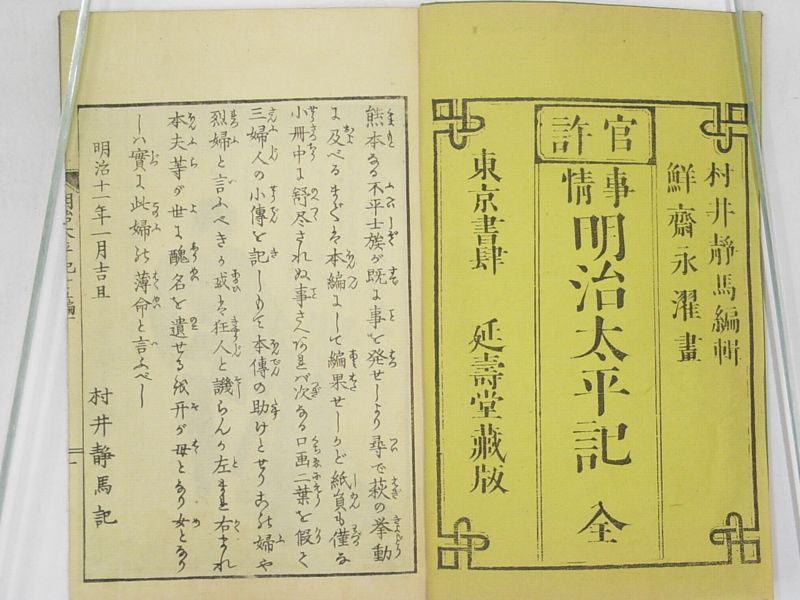 官許
村井靜馬編輯
鮮齋永濯畫
事情
明治太平記 全
東京書肆 延壽堂藏版
熊本なる不平士族が既に事を発せしより尋で萩の挙動
に及べる
本編にして編果せしかど紙員も僅な
小冊中に
尽されぬ事さへあれバ次なる口画二葉を假て
三婦人の小傳を記しもて本傳の助けとせり
婦や
烈婦と言ふべきか或は狂人と譏らんか左まれ右まれ
本夫等が世に醜名を遺せる
母となり女となり
しハ實に此婦の薄命と言ふべし
明治十一年一月吉旦
村井靜馬記